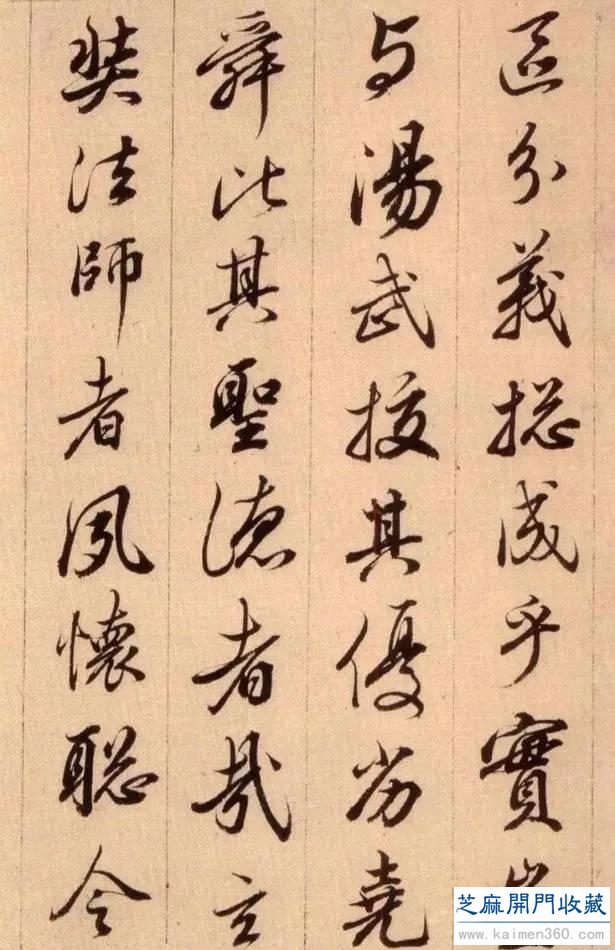 區分義揔成乎實豈
与湯武挍其優劣堯
舜比其聖德者哉玄
奘法師者夙懷聡令
芝麻開門收藏
www.kaimen360.com